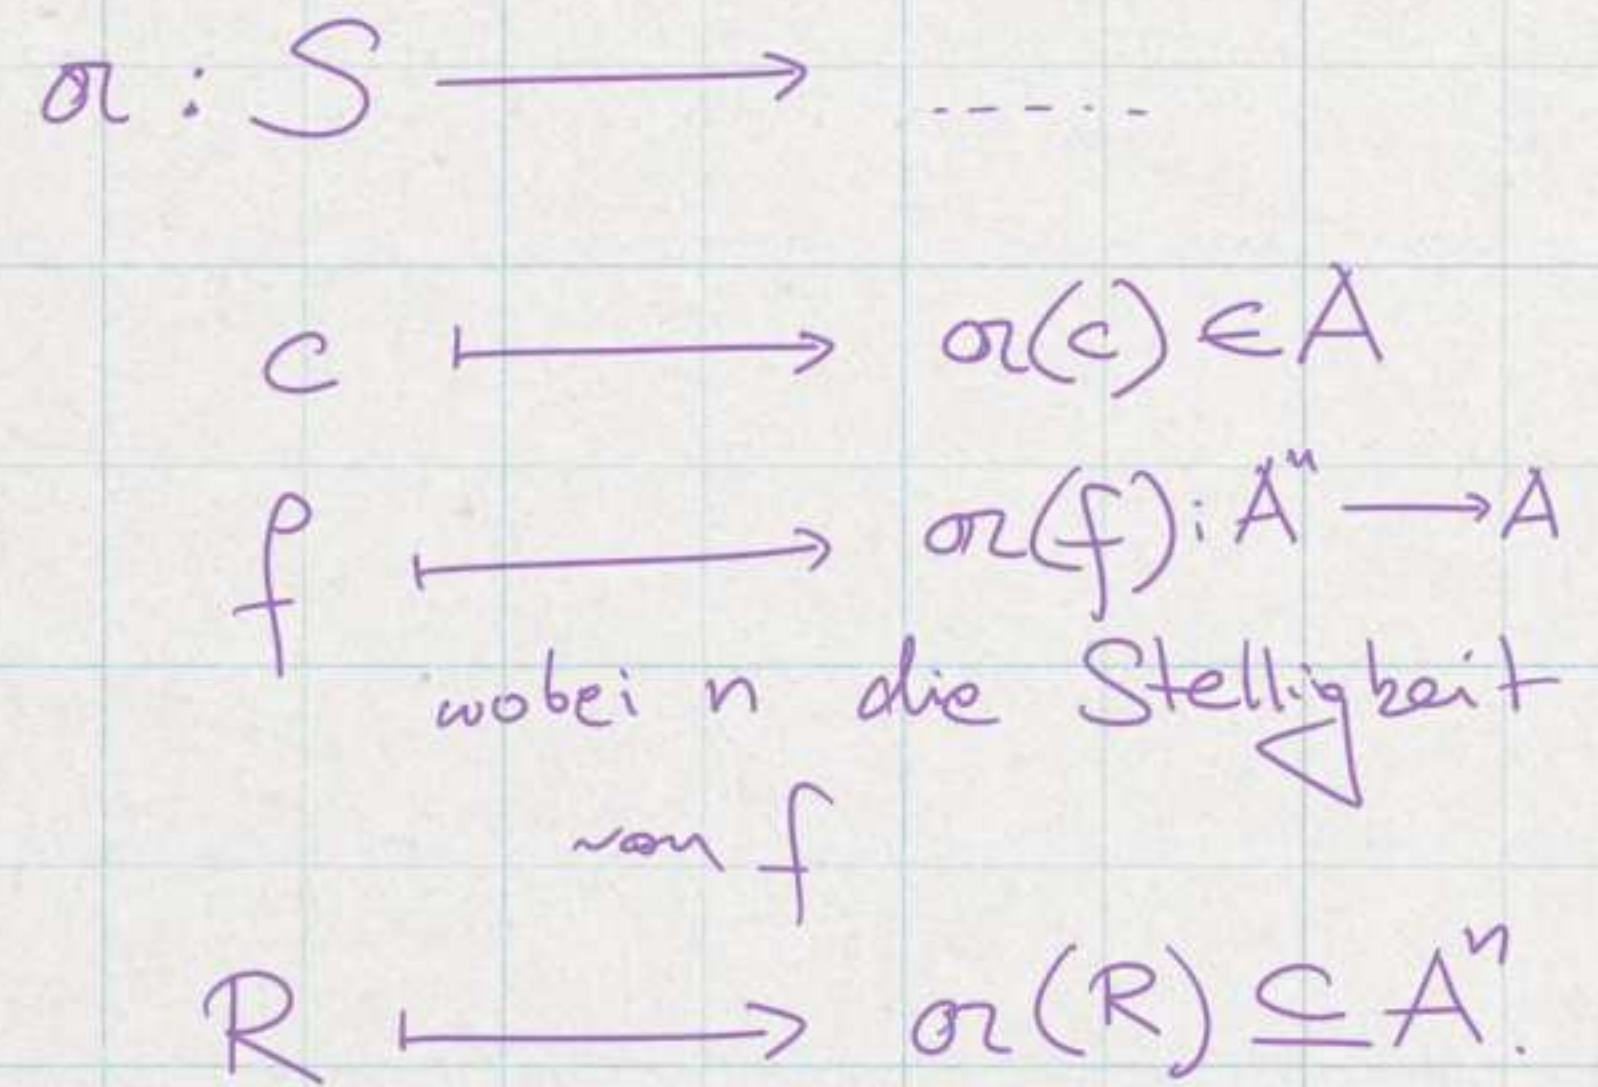 𝔞 : S ⟶ -----
c ⟼ 𝔞(c) ∈ A
f ⟼ 𝔞(f) : Aⁿ ⟶ A
wobei n die Stelligkeit
von f
R ⟼ 𝔞(R) ⊆ Aⁿ.